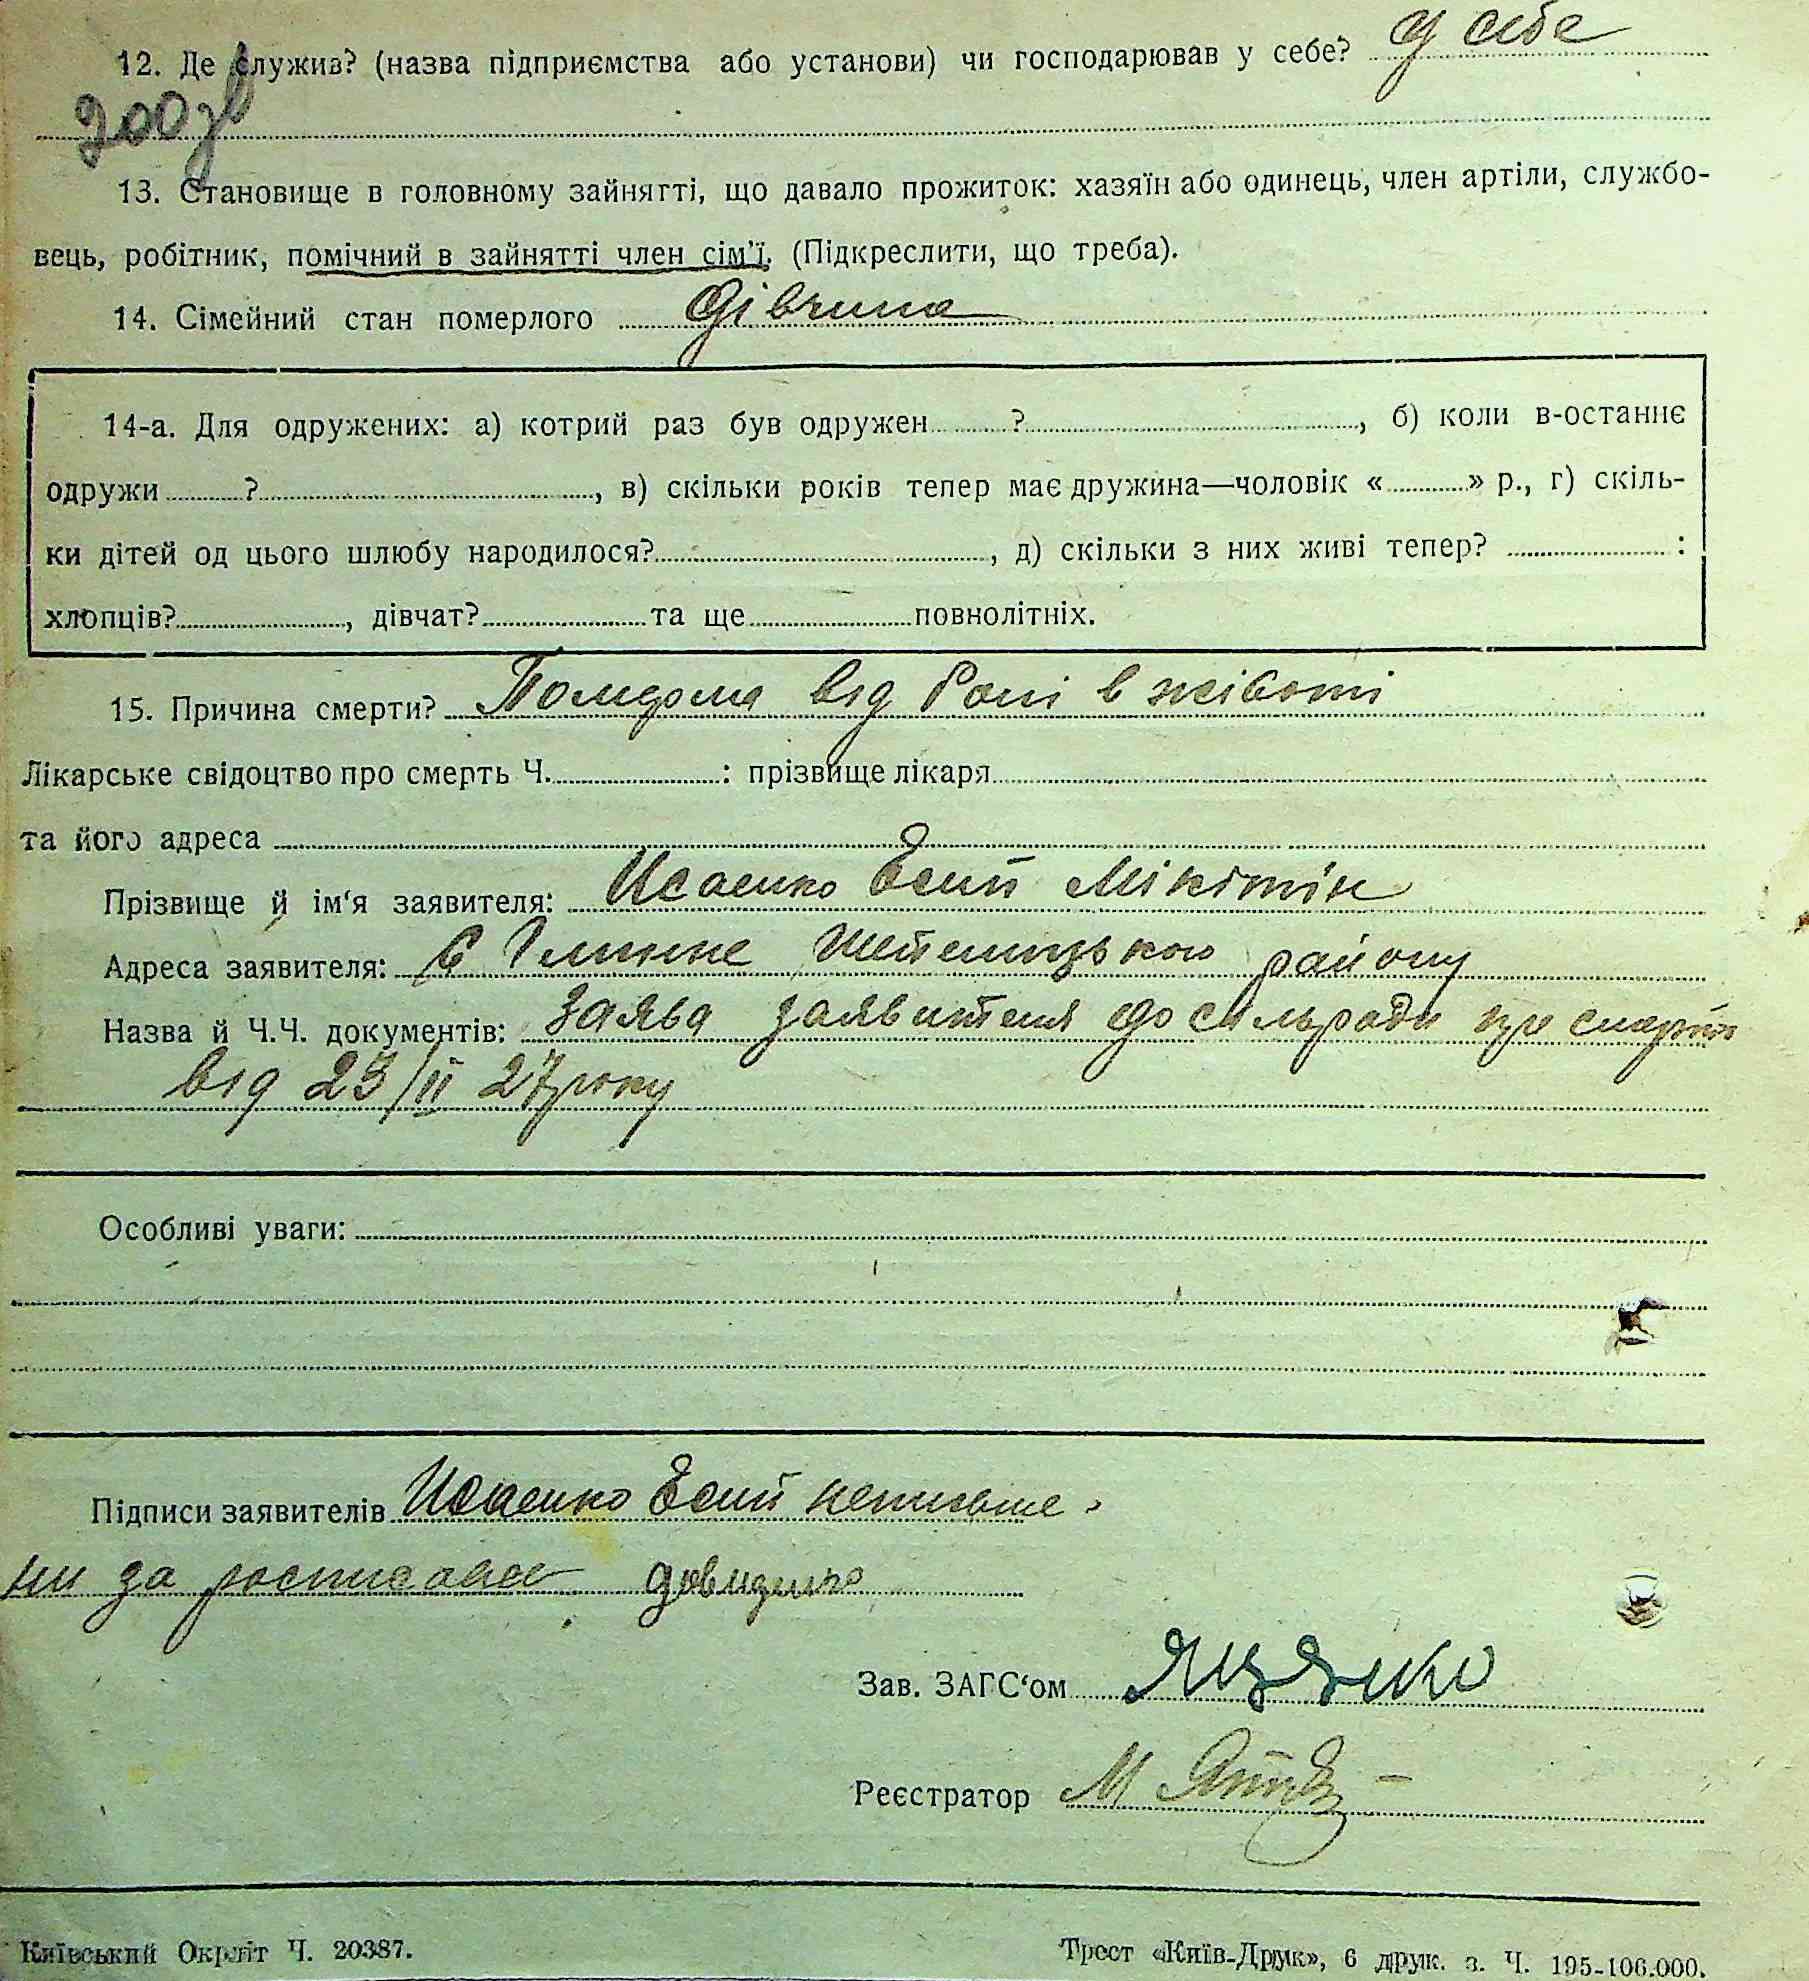 12. Де служив? (назва підприємства або установи) чи господарював у себе? У себе
200 зв
13. Становище в головному зайнятті, що давало прожиток: хазяїн або одинець, член артіли, службо-
вець, робітник, помічний в зайнятті член сім'ї. (Підкреслити, що треба).
14. Сімейний стан померлого Дівчина
14-а. Для одружених: а) котрий раз був одружен ? , б) коли в-останнє
одружи ? , в) скільки років тепер має дружина—чоловік « » р., г) скіль-
ки дітей од цього шлюбу народилося? , д) скільки з них живі тепер? :
хлопців? , дівчат? та ще повнолітніх.
15. Причина смерти? від болі в жівоті
Лікарське свідоцтво про смерть Ч. : прізвище лікаря
та його адреса
Прізвище й ім'я заявителя: Исаенко Мікітін
Адреса заявителя: С району
Назва й Ч.Ч. документів: Заява заявителя до сільради про смерть
від 23/II 27 року
Особливі уваги:
Підписи заявителів Исаенко
за росписався
Зав. ЗАГС'ом
Реєстратор М
Київський Окрліт Ч. 20387.
Трест «Київ-Друк», 6 друк. з. Ч. 195-106.000.